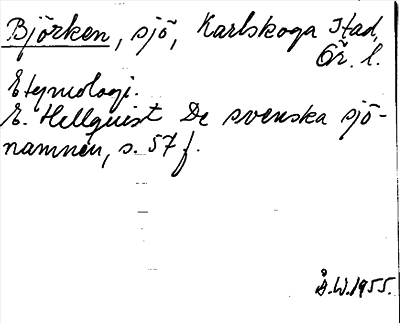 Björken, sjö, Karlskoga stad,
Ör. l.
Etymologi.
E. Hellquist De svenska sjö-
namnen, s. 57 f.
Å.W. 1955.